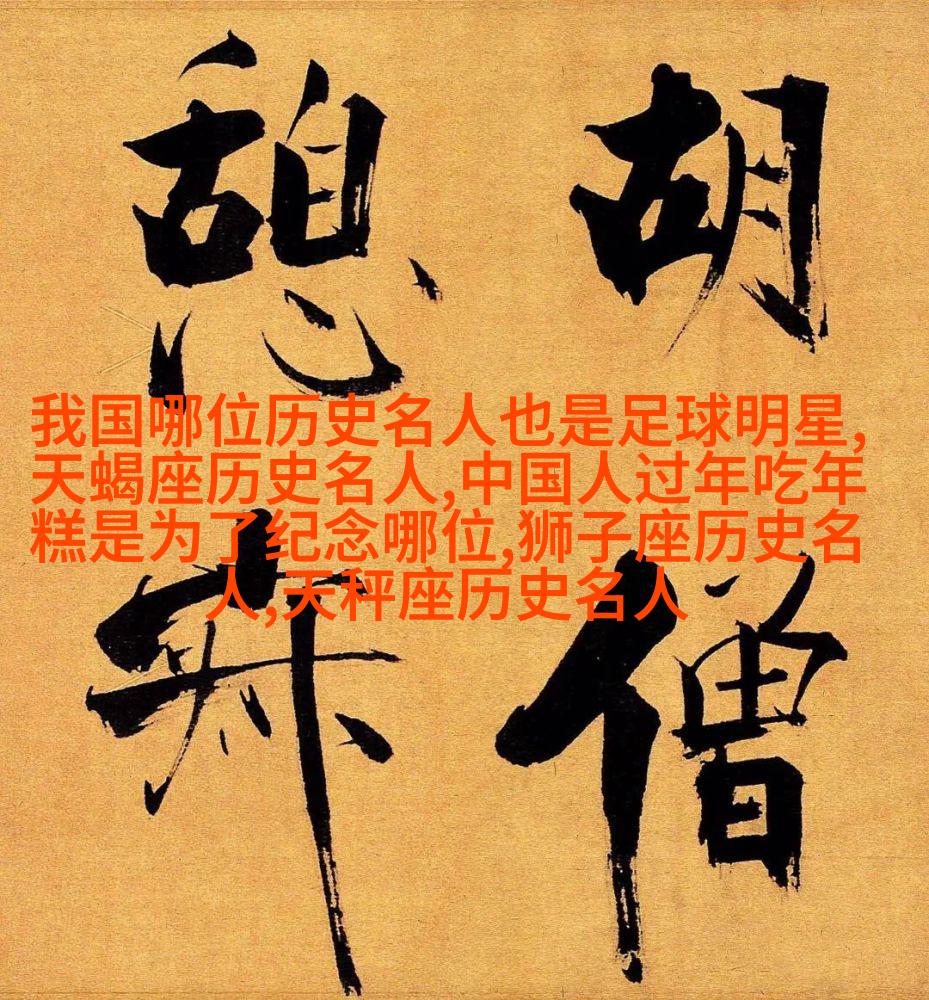 胡僧
憩寂
我国哪位历史名人也是足球明星,
天蝎座历史名人,中国人过年吃年
糕是为了纪念哪位,狮子座历史名
人,天秤座历史名人